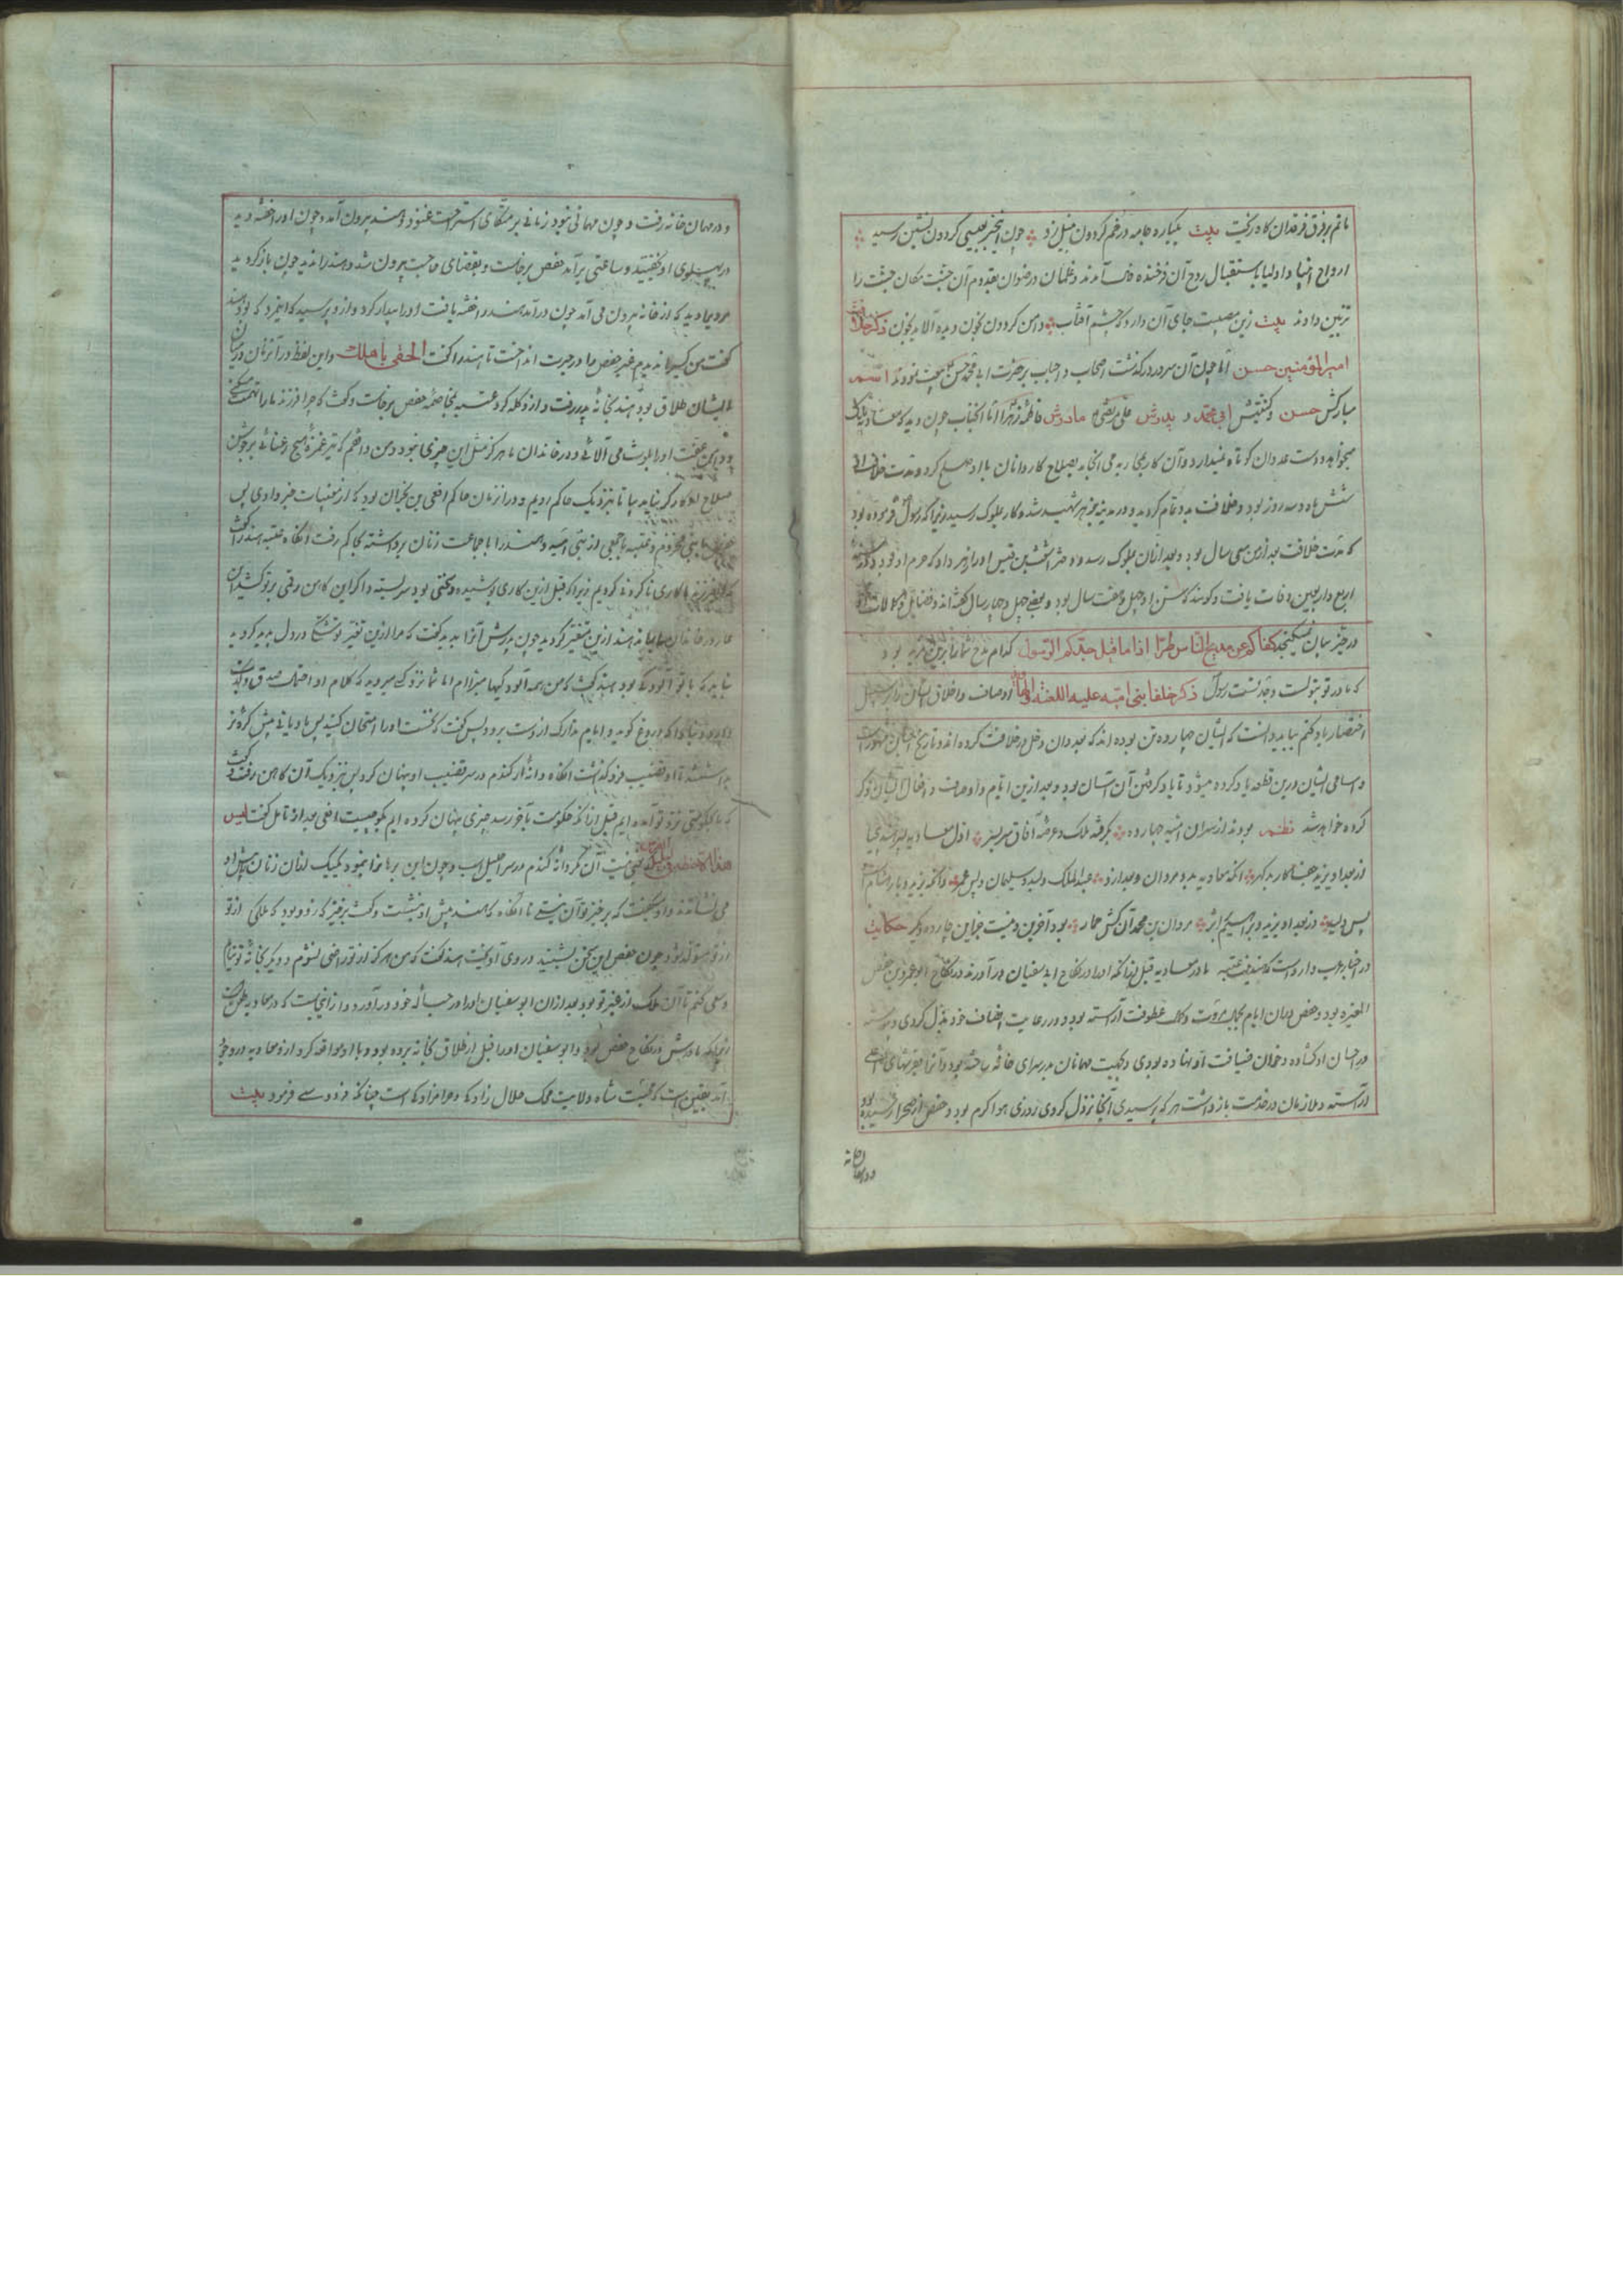 ماتم بر فرق فرقدان کاه ریخت بیت یکباره جامه در خم گردون بنیل زد چون این خبر بعیسی گردون نشین رسید
ارواح انبیا و اولیا باستقبال روح آن فرخنده آمدند و غلمان و رضوان بقدوم آن جنت مکان جنت را
تزیین دادند بیت زین مصیبت جای آن دارد که چشم آفتاب دامن گردون بخون دیده آلاید بخون ذکر خلافت
امیر المؤمنین حسن اما چون آن سرور درگذشت اصحاب و احباب بر حضرت ابی محمد حسن بیعت نمودند اسم
مبارکش حسن و کنیتش ابی محمد و پدرش علی مرتضی مادرش فاطمه زهرا اما آنجناب چون دید که معاویه
میخواهد دست عدوان کوتاه نمیدارد و آن کار بمحاربه می انجامد بصلاح کاردانان با او صلح کرد و مدت خلافت
شش ماه و سه روز بود و خلافت بدو تمام گردید و در مدینه بزهر شهید شد و کار بملوک رسید زیرا که رسول فرموده بود
که مدت خلافت بعد از من سی سال بود و بعد از آن بملوک رسد و دختر اشعث بن قیس او را زهر داد که حرم او بود و در سنه
اربع و اربعین وفات یافت و گویند که سن او چهل و هفت سال بود و بعضی چهل و چهار سال گفته اند و فضایل و کمالات او
در حیز بیان نمیگنجد کفاکم عن مدیح الناس طرا اذا ما قیل جدکم الرسول کدام مدح شما را برین مزید بود
که مادر تو بتولست و جد تست رسول ذکر خلفا بنی امیه علیه اللعنه اوصاف و اخلاق ایشان را بر سبیل
اختصار یاد کنم بباید دانست که ایشان چهارده تن بوده اند که بعدوان دخل در خلافت کرده اند و تاریخ
و اسامی ایشان درین قطعه یاد کرده میشود تا یاد گرفتن آن آسان بود و بعد ازین ایام و اوصاف و افعال ایشان ذکر
کرده خواهد شد نظم بودند از سران امیه چهارده بگرفته ملک و عرصه آفاق سربسر اول معاویه پسر هند بی حیا
وز بعد او یزید جفاکار بدگهر آنگه معاویه بد و مروان و بعد ازو عبد الملک ولید و سلیمان و پس عمر وانگه یزید و باز هشام
پس ولید وز بعد او یزید و براهیم مروان بن محمد آن کش حمار بود آخرین و نیست جز این چارده دگر حکایت
در اخبار عرب وارد است که هند بنت عتبه مادر معاویه قبل از آنکه او را در نکاح ابو سفیان در آورند در نکاح ابو عمرو بن حفص
المغیره بود و حفص در آن ایام بکمال مروت و عطوفت آراسته بود و در رعایت اضیاف خود بذل کردی و
در احسان او گشاده و خوان ضیافت او نهاده بودی و بجهت مهمانان در سرای خانه ساخته بود و آنرا بفرشهای
آراسته و ملازمان در خدمت باز داشته هر که برسیدی آنجا نزول کردی روزی هوا گرم بود و حفص از صحرا رسیده بود
در میان خانه
و در مهمان خانه رفت و چون مهمانی نبود زمانی بر متکای استراحت غنود و هند بیرون آمد و چون او را خفته دید
در پهلوی او بخفتید و ساعتی برآمد حفص برخاست و بقضای حاجت بیرون شد و هند را ندید چون باز گردید
مردی را دید که از خانه بیرون می آمد چون درآمد هند را خفته یافت او را بیدار کرد و ازو پرسید که این مرد که بود هند
گفت من کسی را ندیدم غیر حفص را در حیرت انداخت تا هند را گفت الحقی باهلک و این لفظ در آن زمان در میان
ایشان طلاق بود هند بخانه پدر رفت و ازو گله کرد عتبه بمخاصمه حفص برخاست و گفت که چرا فرزند ما را تهمت میکنی
و دامن عفت او را بلوث می آلائی و در خاندان ما هرگز مثل این چیزی نبود
صلاح بیا تا بنزدیک حاکم رویم و در آن زمان حاکم افعی بن نجران بود که از مغیبات خبر دادی پس
حفص با بنی مخزوم و عتبه با جمعی از بنی امیه و هند را با جماعت زنان برداشته بحاکم رفت آنگاه عتبه هند را گفت
که ای فرزند ما کاری ناکردنی کردیم زیرا که قبل ازین کاری پوشیده و سخنی بود سربسته و اگر این کاهن
عار در خاندان ما بماند هند ازین متغیر گردید چون پدرش آنرا بدید گفت که مرا ازین تغیر تو شکی در دل پدید گردید
نباید که با تو آلودگی بود هند گفت که من همه آلودگیها مبرا ام اما شما نزد کسی میروید که کلام او احتمال صدق و کذب
دارد و مبادا که دروغ گوید و ایام تدارک از دست برود پس گفت که نخست او را امتحان کنید پس مادیانی پیش کره نر
بداشتند تا او قضیب فرو گذاشت آنگاه دانه از گندم در سر قضیب او پنهان کرد پس نزدیک آن کاهن رفت و گفت
که ما بحکومتی نزد تو آمده ایم قبل از آنکه حکومت بآخر رسد چیزی پنهان کرده ایم بگو چیست افعی بعد از تامل گفت لیس
هذا یعنی نیست آن مگر دانه گندم در سر احلیل اسب و چون این برهان بنمود یک یک از آن زنان پیش او
می نشاندند و او میگفت که برخیز تو آن نیستی تا آنگاه که هند پیش او بنشست و گفت برخیز که زود بود که ملکی از تو
متولد شود چون حفص این سخن بشنید در وی آویخت هند گفت که من هرگز از تو راضی نشوم و دیگر بخانه تو نیایم
و سعی کنم تا آن ملک از غیر تو بود بعد از آن ابو سفیان او را در حباله خود در آورد و از اینجاست که در معاویه طعن
زیرا که مادرش در نکاح حفص بود و ابو سفیان او را قبل از طلاق بخانه برده بود و با او مواقعه کرد ازو معاویه در وجود
آمد یقین است که محبت شاه ولایت محک حلال زادگی و حرامزادگی است چنانکه فردوسی فرمود بیت